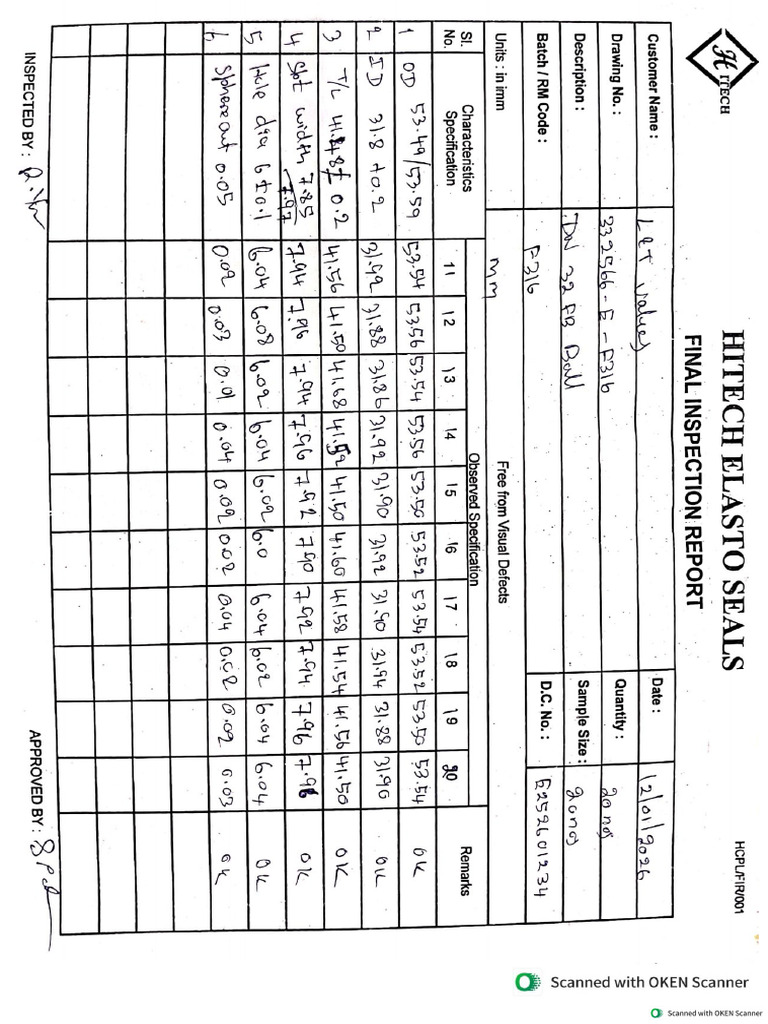 HITECH
HITECH ELASTO SEALS
HCPL/FIR/001
FINAL INSPECTION REPORT
Customer Name : L&T Valves Date : 12/01/2026
Drawing No. : 332566-E-F316 Quantity : 20 nos
Description : DN 32 FB Ball Sample Size : 20 nos
Batch / RM Code : F316 D.C. No. : E252601234
Units : in imm mm Free from Visual Defects
Sl. No. Characteristics Specification Observed Specification Remarks
11 12 13 14 15 16 17 18 19 20
1 OD 53.49/53.59 53.54 53.56 53.54 53.56 53.50 53.52 53.54 53.52 53.50 53.54 OK
2 ID 31.8 +0.2 31.92 31.88 31.86 31.92 31.90 31.92 31.90 31.94 31.88 31.90 OK
3 T/L ± 0.2 41.56 41.50 41.68 41.52 41.50 41.60 41.58 41.54 41.56 41.50 OK
4 Slot width 7.85 7.97 7.94 7.96 7.94 7.96 7.92 7.90 7.92 7.94 7.96 7.96 OK
5 Hole dia 6±0.1 6.04 6.08 6.02 6.04 6.02 6.0 6.04 6.02 6.04 6.04 OK
6 Sphereout 0.05 0.02 0.03 0.01 0.04 0.02 0.02 0.04 0.02 0.02 0.03 OK
INSPECTED BY : APPROVED BY :
Scanned with OKEN Scanner
Scanned with OKEN Scanner